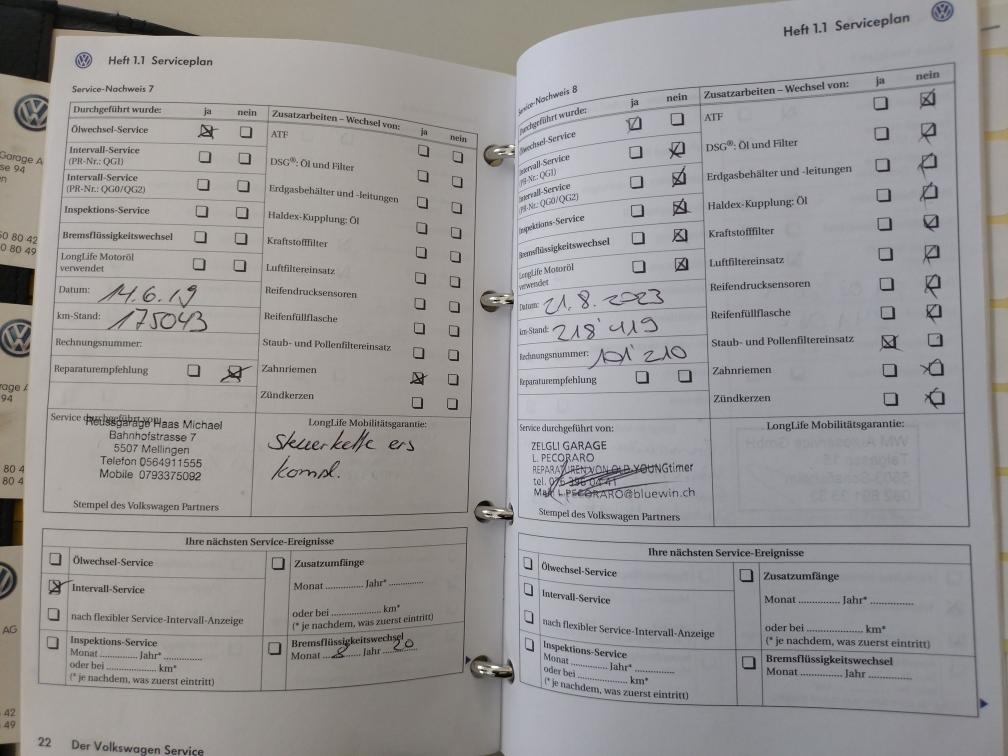 Heft 1.1 Serviceplan
Service-Nachweis 7
Durchgeführt wurde: ja nein
Ölwechsel-Service
Intervall-Service
(PR-Nr.: QG1)
Intervall-Service
(PR-Nr.: QG0/QG2)
Inspektions-Service
Bremsflüssigkeitswechsel
LongLife Motoröl
verwendet
Datum: 14.6.19
km-Stand: 175043
Rechnungsnummer:
Reparaturempfehlung
Zusatzarbeiten – Wechsel von: ja nein
ATF
DSG®: Öl und Filter
Erdgasbehälter und -leitungen
Haldex-Kupplung: Öl
Kraftstofffilter
Luftfiltereinsatz
Reifendrucksensoren
Reifenfüllflasche
Staub- und Pollenfiltereinsatz
Zahnriemen
Zündkerzen
Service durchgeführt von:
Reussgarage Haas Michael
Bahnhofstrasse 7
5507 Mellingen
Telefon 0564911555
Mobile 0793375092
Stempel des Volkswagen Partners
LongLife Mobilitätsgarantie:
Steuerkette ers
kompl.
Ihre nächsten Service-Ereignisse
Ölwechsel-Service
Intervall-Service
nach flexibler Service-Intervall-Anzeige
Inspektions-Service
Monat ............ Jahr* ............
oder bei ................ km*
(* je nachdem, was zuerst eintritt)
Zusatzumfänge
Monat ............ Jahr* ............
oder bei ................ km*
(* je nachdem, was zuerst eintritt)
Bremsflüssigkeitswechsel
Monat 8 Jahr 20
22 Der Volkswagen Service
Heft 1.1 Serviceplan
Service-Nachweis 8
Durchgeführt wurde: ja nein
Ölwechsel-Service
Intervall-Service
(PR-Nr.: QG1)
Intervall-Service
(PR-Nr.: QG0/QG2)
Inspektions-Service
Bremsflüssigkeitswechsel
LongLife Motoröl
verwendet
Datum: 21.8.2023
km-Stand: 218'419
Rechnungsnummer: 101'210
Reparaturempfehlung
Zusatzarbeiten – Wechsel von: ja nein
ATF
DSG®: Öl und Filter
Erdgasbehälter und -leitungen
Haldex-Kupplung: Öl
Kraftstofffilter
Luftfiltereinsatz
Reifendrucksensoren
Reifenfüllflasche
Staub- und Pollenfiltereinsatz
Zahnriemen
Zündkerzen
Service durchgeführt von:
ZELGLI GARAGE
L. PECORARO
REPARATUREN VON OLD-YOUNGtimer
tel. 076 396 04 41
Mail L.PECORARO@bluewin.ch
Stempel des Volkswagen Partners
LongLife Mobilitätsgarantie:
Ihre nächsten Service-Ereignisse
Ölwechsel-Service
Intervall-Service
nach flexibler Service-Intervall-Anzeige
Inspektions-Service
Monat ............ Jahr* ............
oder bei ................ km*
(* je nachdem, was zuerst eintritt)
Zusatzumfänge
Monat ............ Jahr* ............
oder bei ................ km*
(* je nachdem, was zuerst eintritt)
Bremsflüssigkeitswechsel
Monat ............ Jahr ............